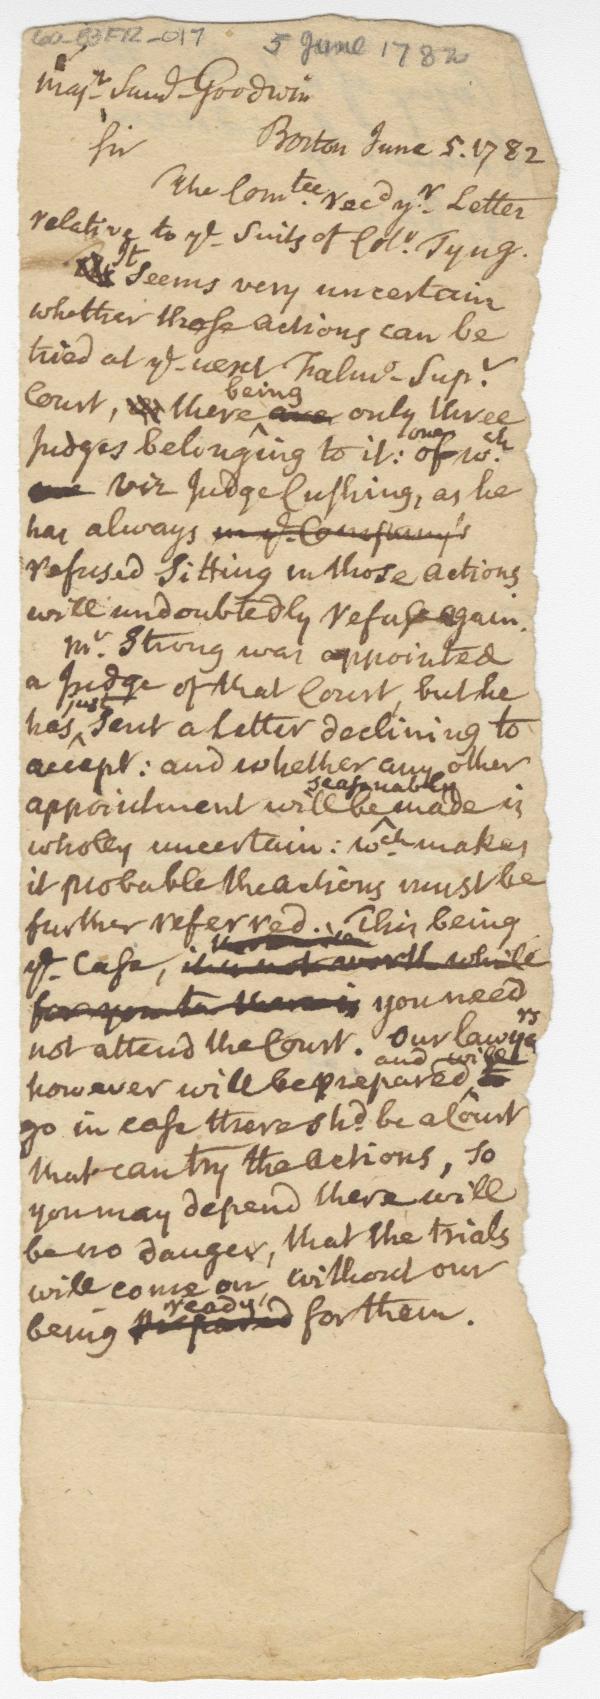 5 June 1782
Majr. Saml. Goodwin
Sir Boston June 5. 1782
The Comtee. recd yr. Letter
relative to ye. Suits of Colo. Tyng.
It Seems very uncertain
whether those actions can be
tried at ye. next Falmo. Supr.
Court, there being are only three
Judges belonging to it: one of wch.
viz Judge Cushing, as he
has always in ye. Company's
refused Sitting in those actions
will undoubtedly refuse again.
Mr. Strong was appointed
a Judge of that Court, but he
has just Sent a Letter declining to
accept: and whether any other
appointment will be seasonably made is
wholey uncertain: wch. makes
it probable the actions must be
further referred. This being
ye. Case, it is not worth while
for you to there is you need
not attend the Court. Our lawyrs
however will be prepared and will to
go in case there shd. be a Court
that can try the actions, so
you may depend there will
be no danger, that the trials
will come on without our
being ready, prepared for them.